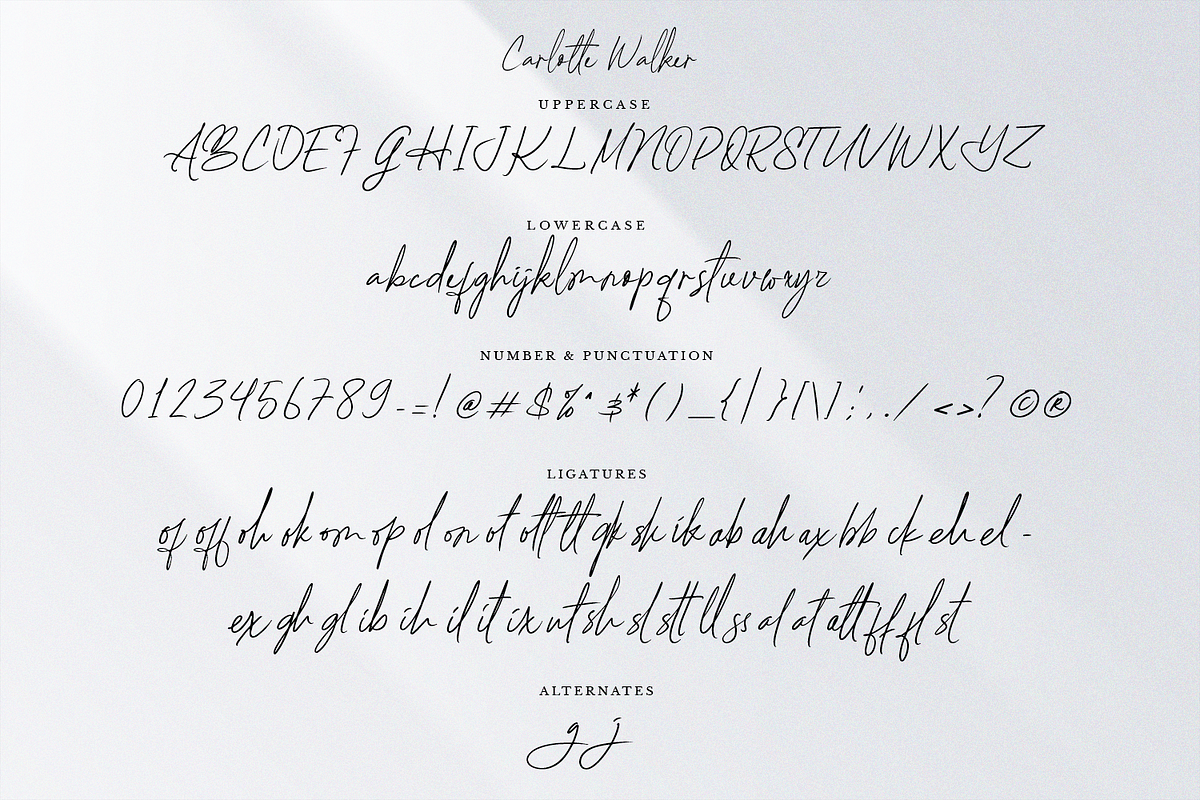 Carlotte Walker
UPPERCASE
ABCDEFGHIJKLMNOPQRSTUVWXYZ
LOWERCASE
abcdefghijklmnopqrstuvwxyz
NUMBER & PUNCTUATION
0123456789-=!@#$%^&*()_{|}[\]:;,./<>?©®
LIGATURES
of off oh ok om op ol on ot ott tt gk sk ik ab ah ax bb ck eh el -
ex gh gl ib ih il it ix ut sh sl stt ll ss al at att ff fl st
ALTERNATES
g j